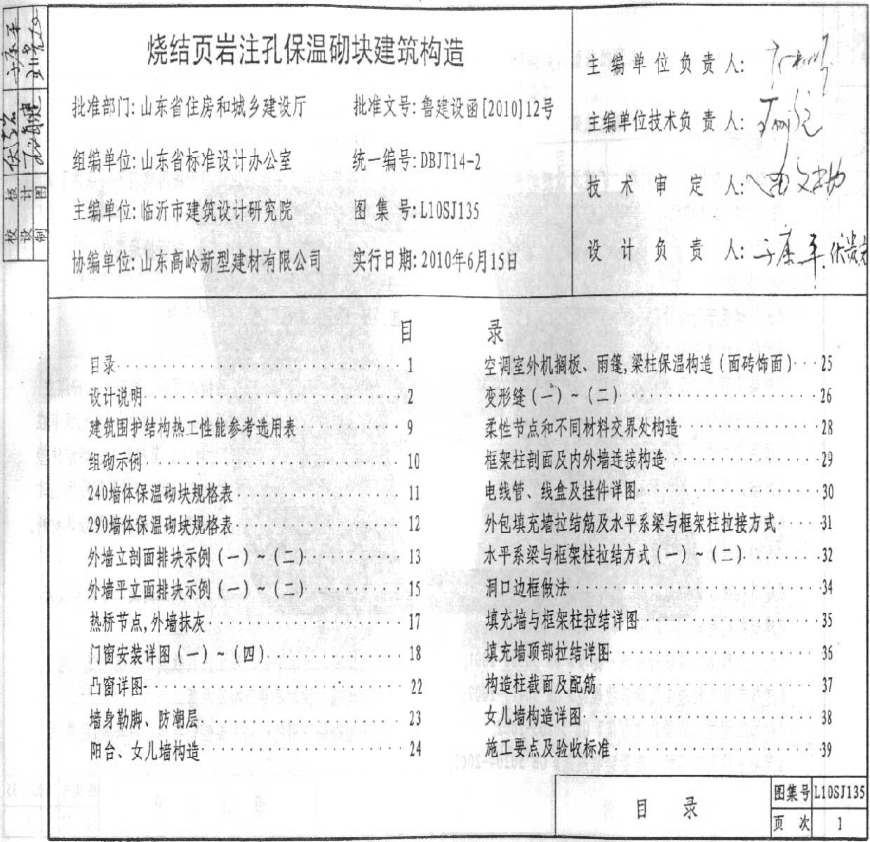 烧结页岩注孔保温砌块建筑构造
批准部门:山东省住房和城乡建设厅 批准文号:鲁建设函[2010]12号
组编单位:山东省标准设计办公室 统一编号:DBJT14-2
主编单位:临沂市建筑设计研究院 图集号:L10SJ135
协编单位:山东高岭新型建材有限公司 实行日期:2010年6月15日
主编单位负责人:
主编单位技术负责人:
技术审定人:
设计负责人:
校核
设计
制图
目录
目录 1
设计说明 2
建筑围护结构热工性能参考选用表 9
组砌示例 10
240墙体保温砌块规格表 11
290墙体保温砌块规格表 12
外墙立剖面排块示例(一)~(二) 13
外墙平立面排块示例(一)~(二) 15
热桥节点,外墙抹灰 17
门窗安装详图(一)~(四) 18
凸窗详图 22
墙身勒脚、防潮层 23
阳台、女儿墙构造 24
空调室外机搁板、雨篷,梁柱保温构造(面砖饰面) 25
变形缝(一)~(二) 26
柔性节点和不同材料交界处构造 28
框架柱剖面及内外墙连接构造 29
电线管、线盒及挂件详图 30
外包填充墙拉结筋及水平系梁与框架柱拉接方式 31
水平系梁与框架柱拉结方式(一)~(二) 32
洞口边框做法 34
填充墙与框架柱拉结详图 35
填充墙顶部拉结详图 36
构造柱截面及配筋 37
女儿墙构造详图 38
施工要点及验收标准 39
目录
图集号 L10SJ135
页次 1